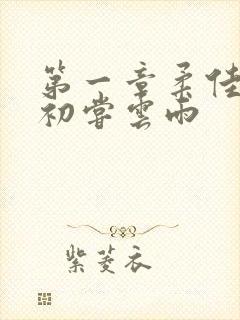 第一章柔佳
初尝雲雨
紫菱衣